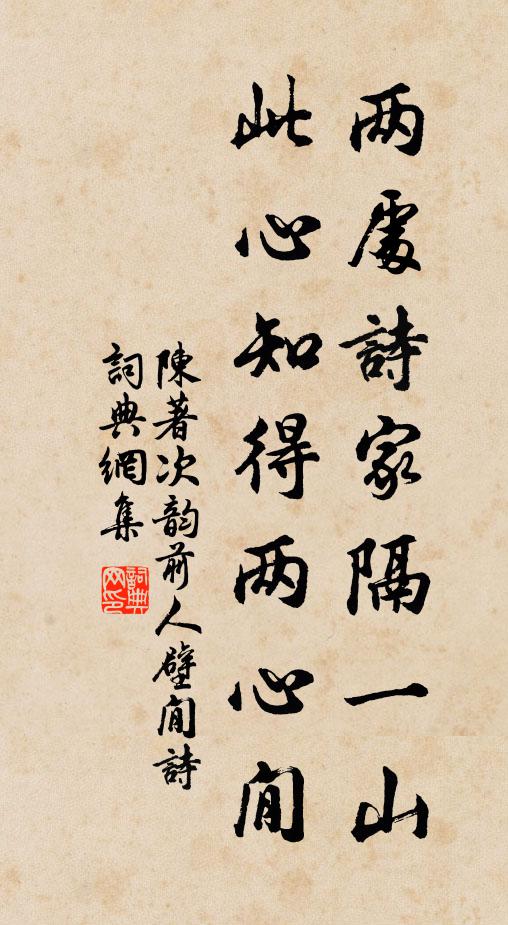 两處詩家隔一山
此心知得两心間
陳著次韵前人壁間詩
詞典網集
詞典网印